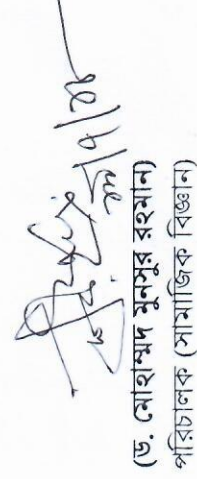 (ড. মোহাম্মদ মুনসুর রহমান)
পরিচালক (সামাজিক বিজ্ঞান)